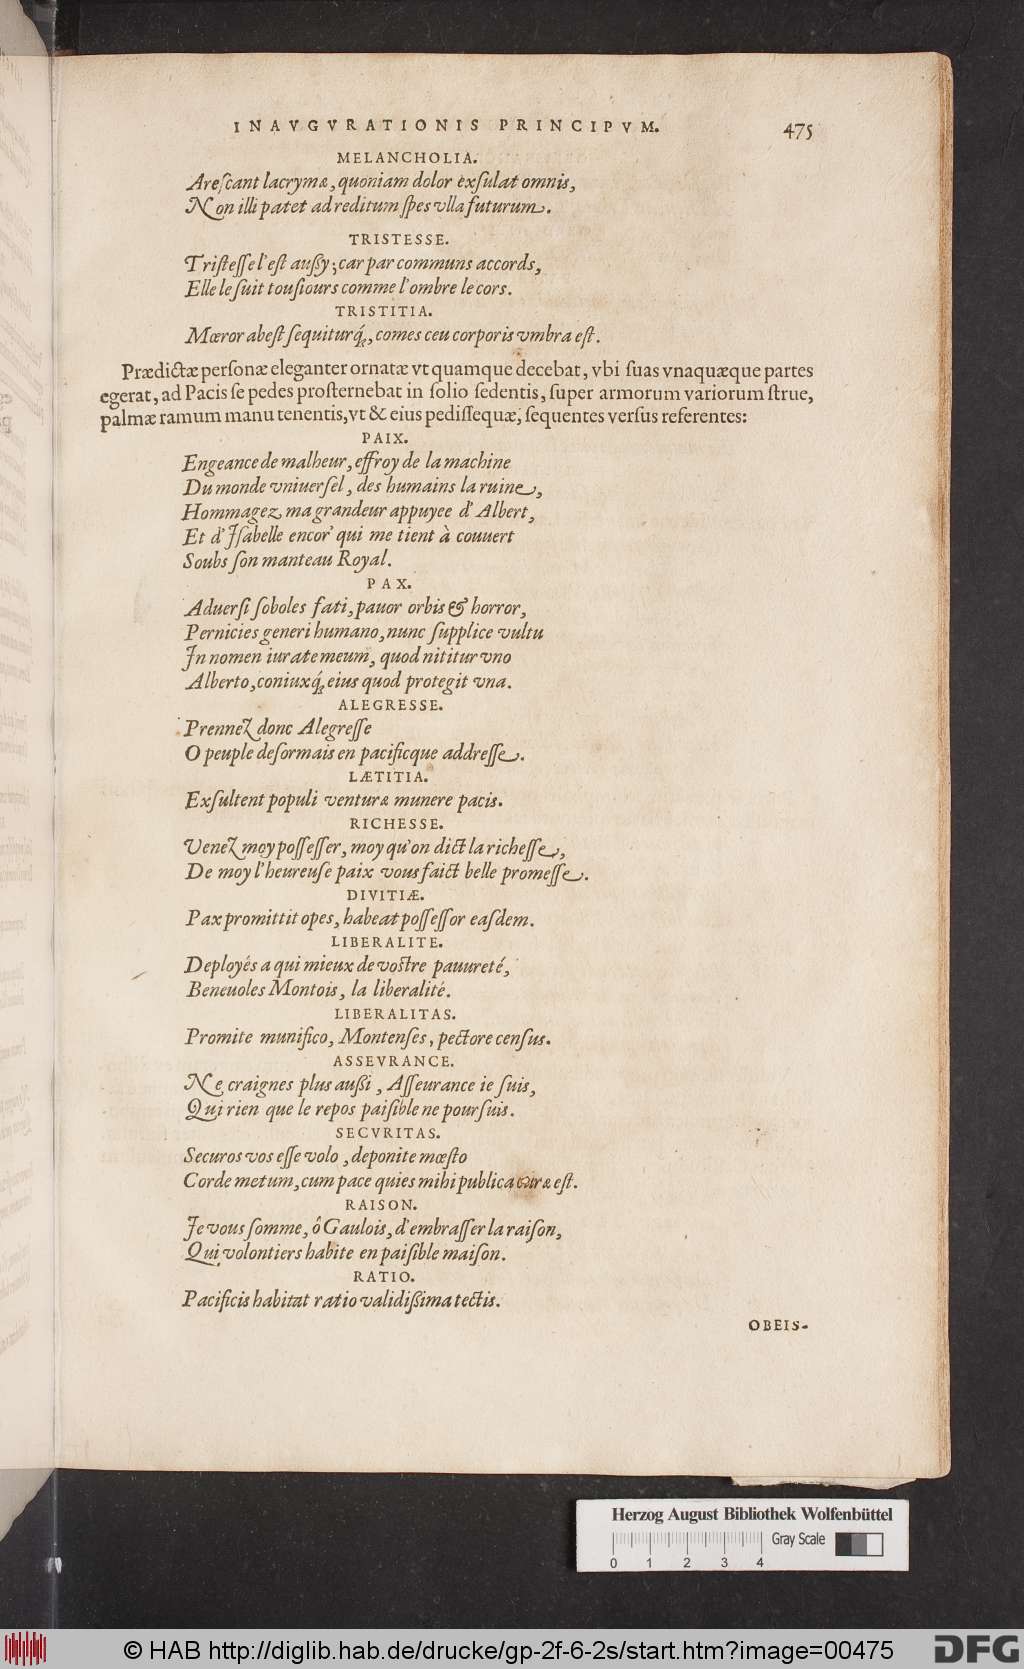 INAVGVRATIONIS PRINCIPVM. 475
MELANCHOLIA.
Areſcant lacrymæ, quoniam dolor exſulat omnis,
Non illi patet ad reditum ſpes vlla futurum.
TRISTESSE.
Triſteſſe l'eſt außy; car par communs accords,
Elle le ſuit touſiours comme l'ombre le cors.
TRISTITIA.
Mœror abeſt ſequiturq́;, comes ceu corporis vmbra eſt.
Prædictæ perſonæ eleganter ornatæ vt quamque decebat, vbi ſuas vnaquæque partes
egerat, ad Pacis ſe pedes proſternebat in ſolio ſedentis, ſuper armorum variorum ſtrue,
palmæ ramum manu tenentis, vt & eius pediſſequæ, ſequentes verſus referentes:
PAIX.
Engeance de malheur, effroy de la machine
Du monde vniuerſel, des humains la ruine,
Hommagez ma grandeur appuyee d'Albert,
Et d'Iſabelle encor' qui me tient à couuert
Soubs ſon manteau Royal.
PAX.
Aduerſi ſoboles fati, pauor orbis & horror,
Pernicies generi humano, nunc ſupplice vultu
In nomen iurate meum, quod nititur vno
Alberto, coniuxq́; eius quod protegit vna.
ALEGRESSE.
Prennez donc Alegreſſe
O peuple deſormais en pacificque addreſſe.
LÆTITIA.
Exſultent populi venturæ munere pacis.
RICHESSE.
Venez moy poſſeſſer, moy qu'on dict la richeſſe,
De moy l'heureuſe paix vous faict belle promeſſe.
DIVITIÆ.
Pax promittit opes, habeat poſſeſſor eaſdem.
LIBERALITE.
Deployés a qui mieux de voſtre pauureté,
Beneuoles Montois, la liberalité.
LIBERALITAS.
Promite munifico, Montenſes, pectore cenſus.
ASSEVRANCE.
Ne craignes plus außi, Aſſeurance ie ſuis,
Qui rien que le repos paiſible ne pourſuis.
SECVRITAS.
Securos vos eſſe volo, deponite mœſto
Corde metum, cum pace quies mihi publica curæ eſt.
RAISON.
Je vous ſomme, ô Gaulois, d'embraſſer la raiſon,
Qui volontiers habite en paiſible maiſon.
RATIO.
Pacificis habitat ratio validißima tectis.
OBEIS-
Herzog August Bibliothek Wolfenbüttel
Gray Scale
0 1 2 3 4
© HAB http://diglib.hab.de/drucke/gp-2f-6-2s/start.htm?image=00475
DFG